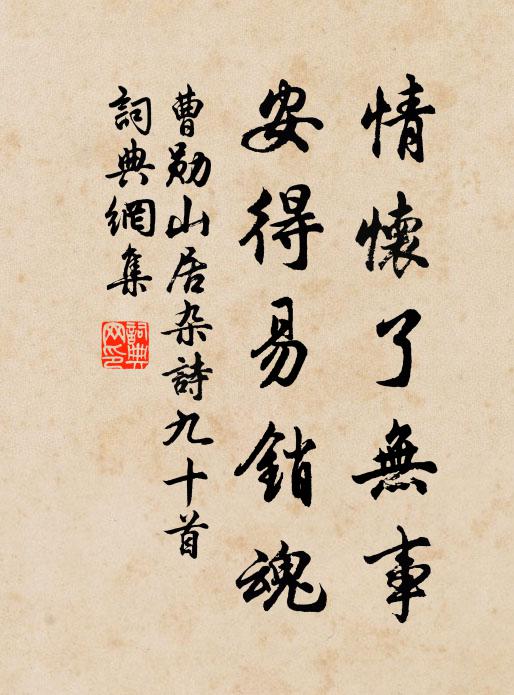 情懷了無事
安得易銷魂
曹勛山居杂詩九十首
詞典網集
詞典
网印